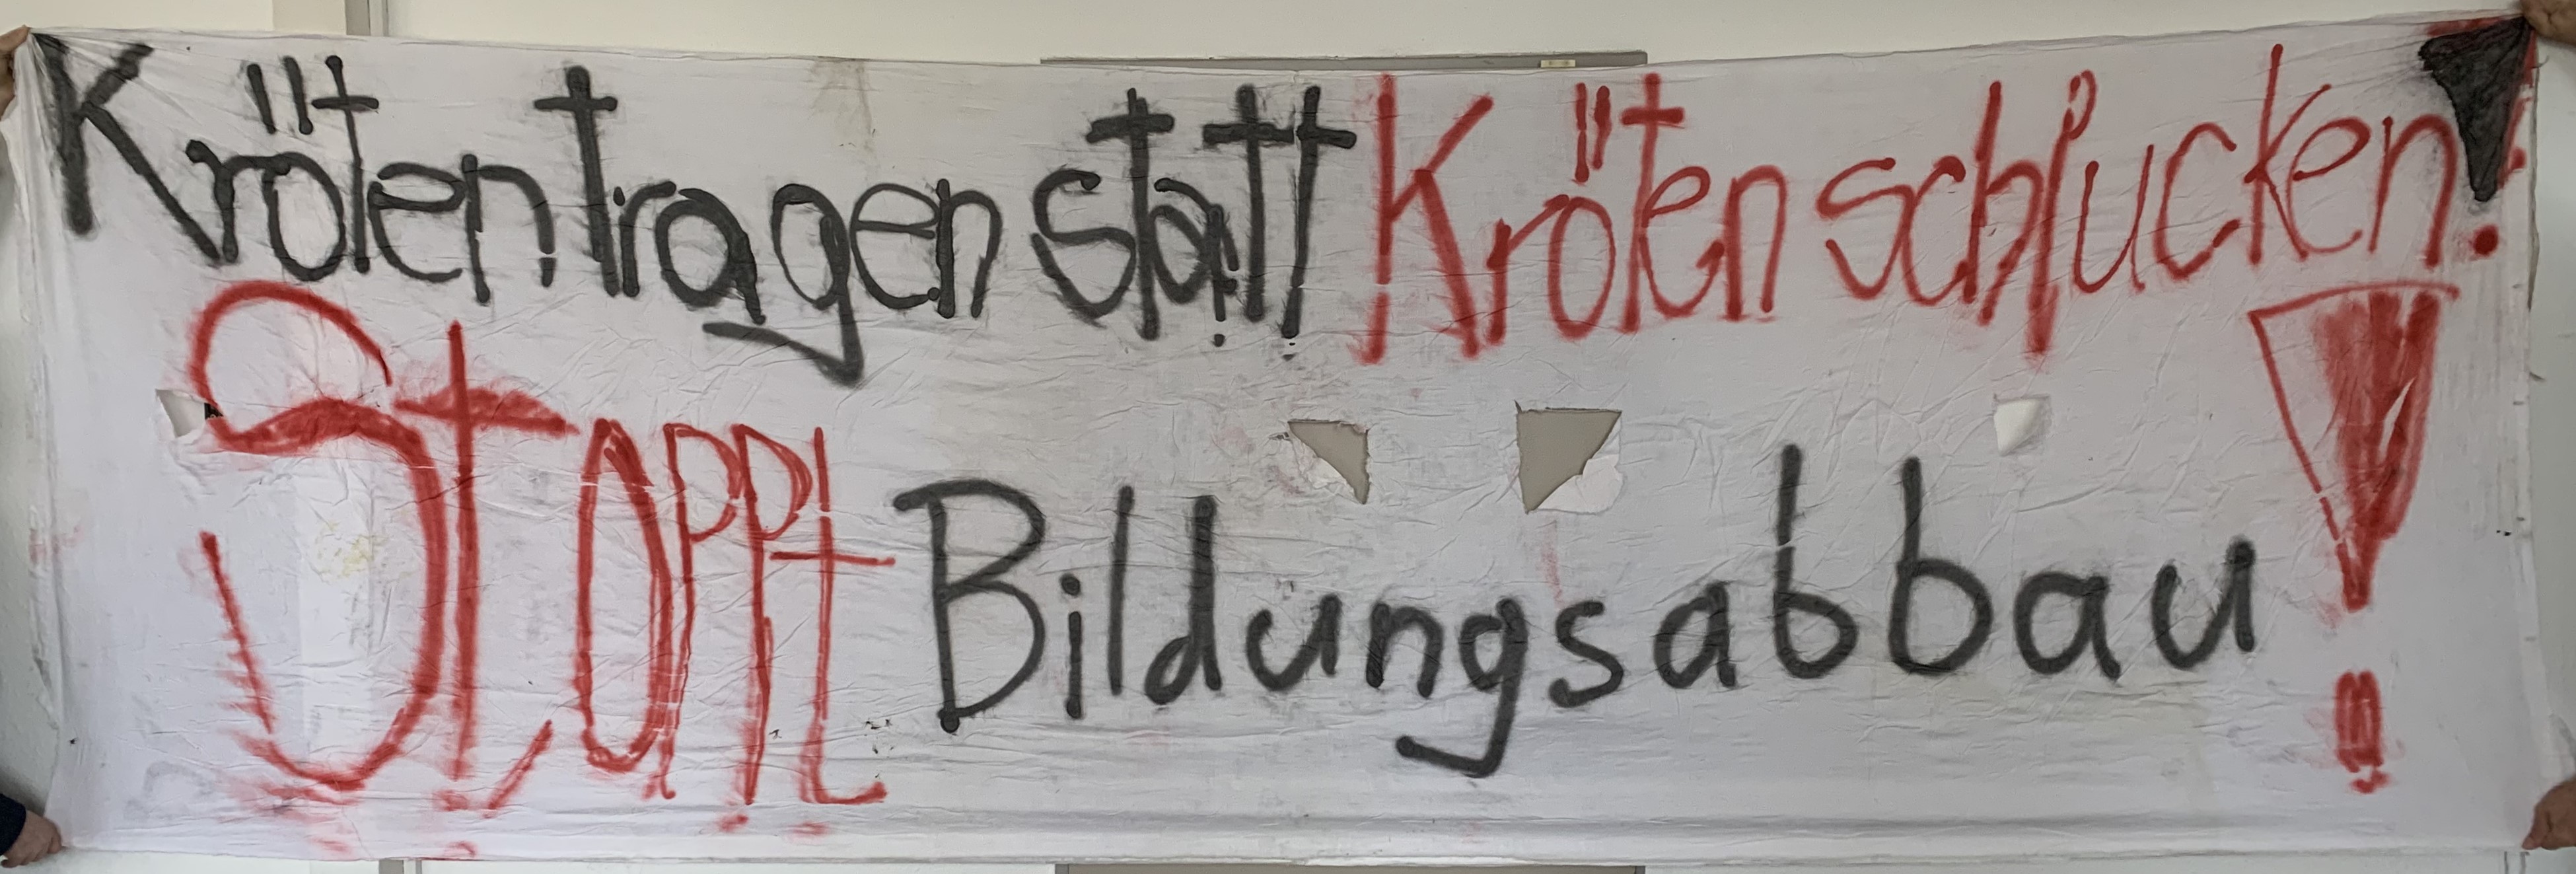 Kröten tragen statt Kröten schlucken!
Stoppt Bildungsabbau!